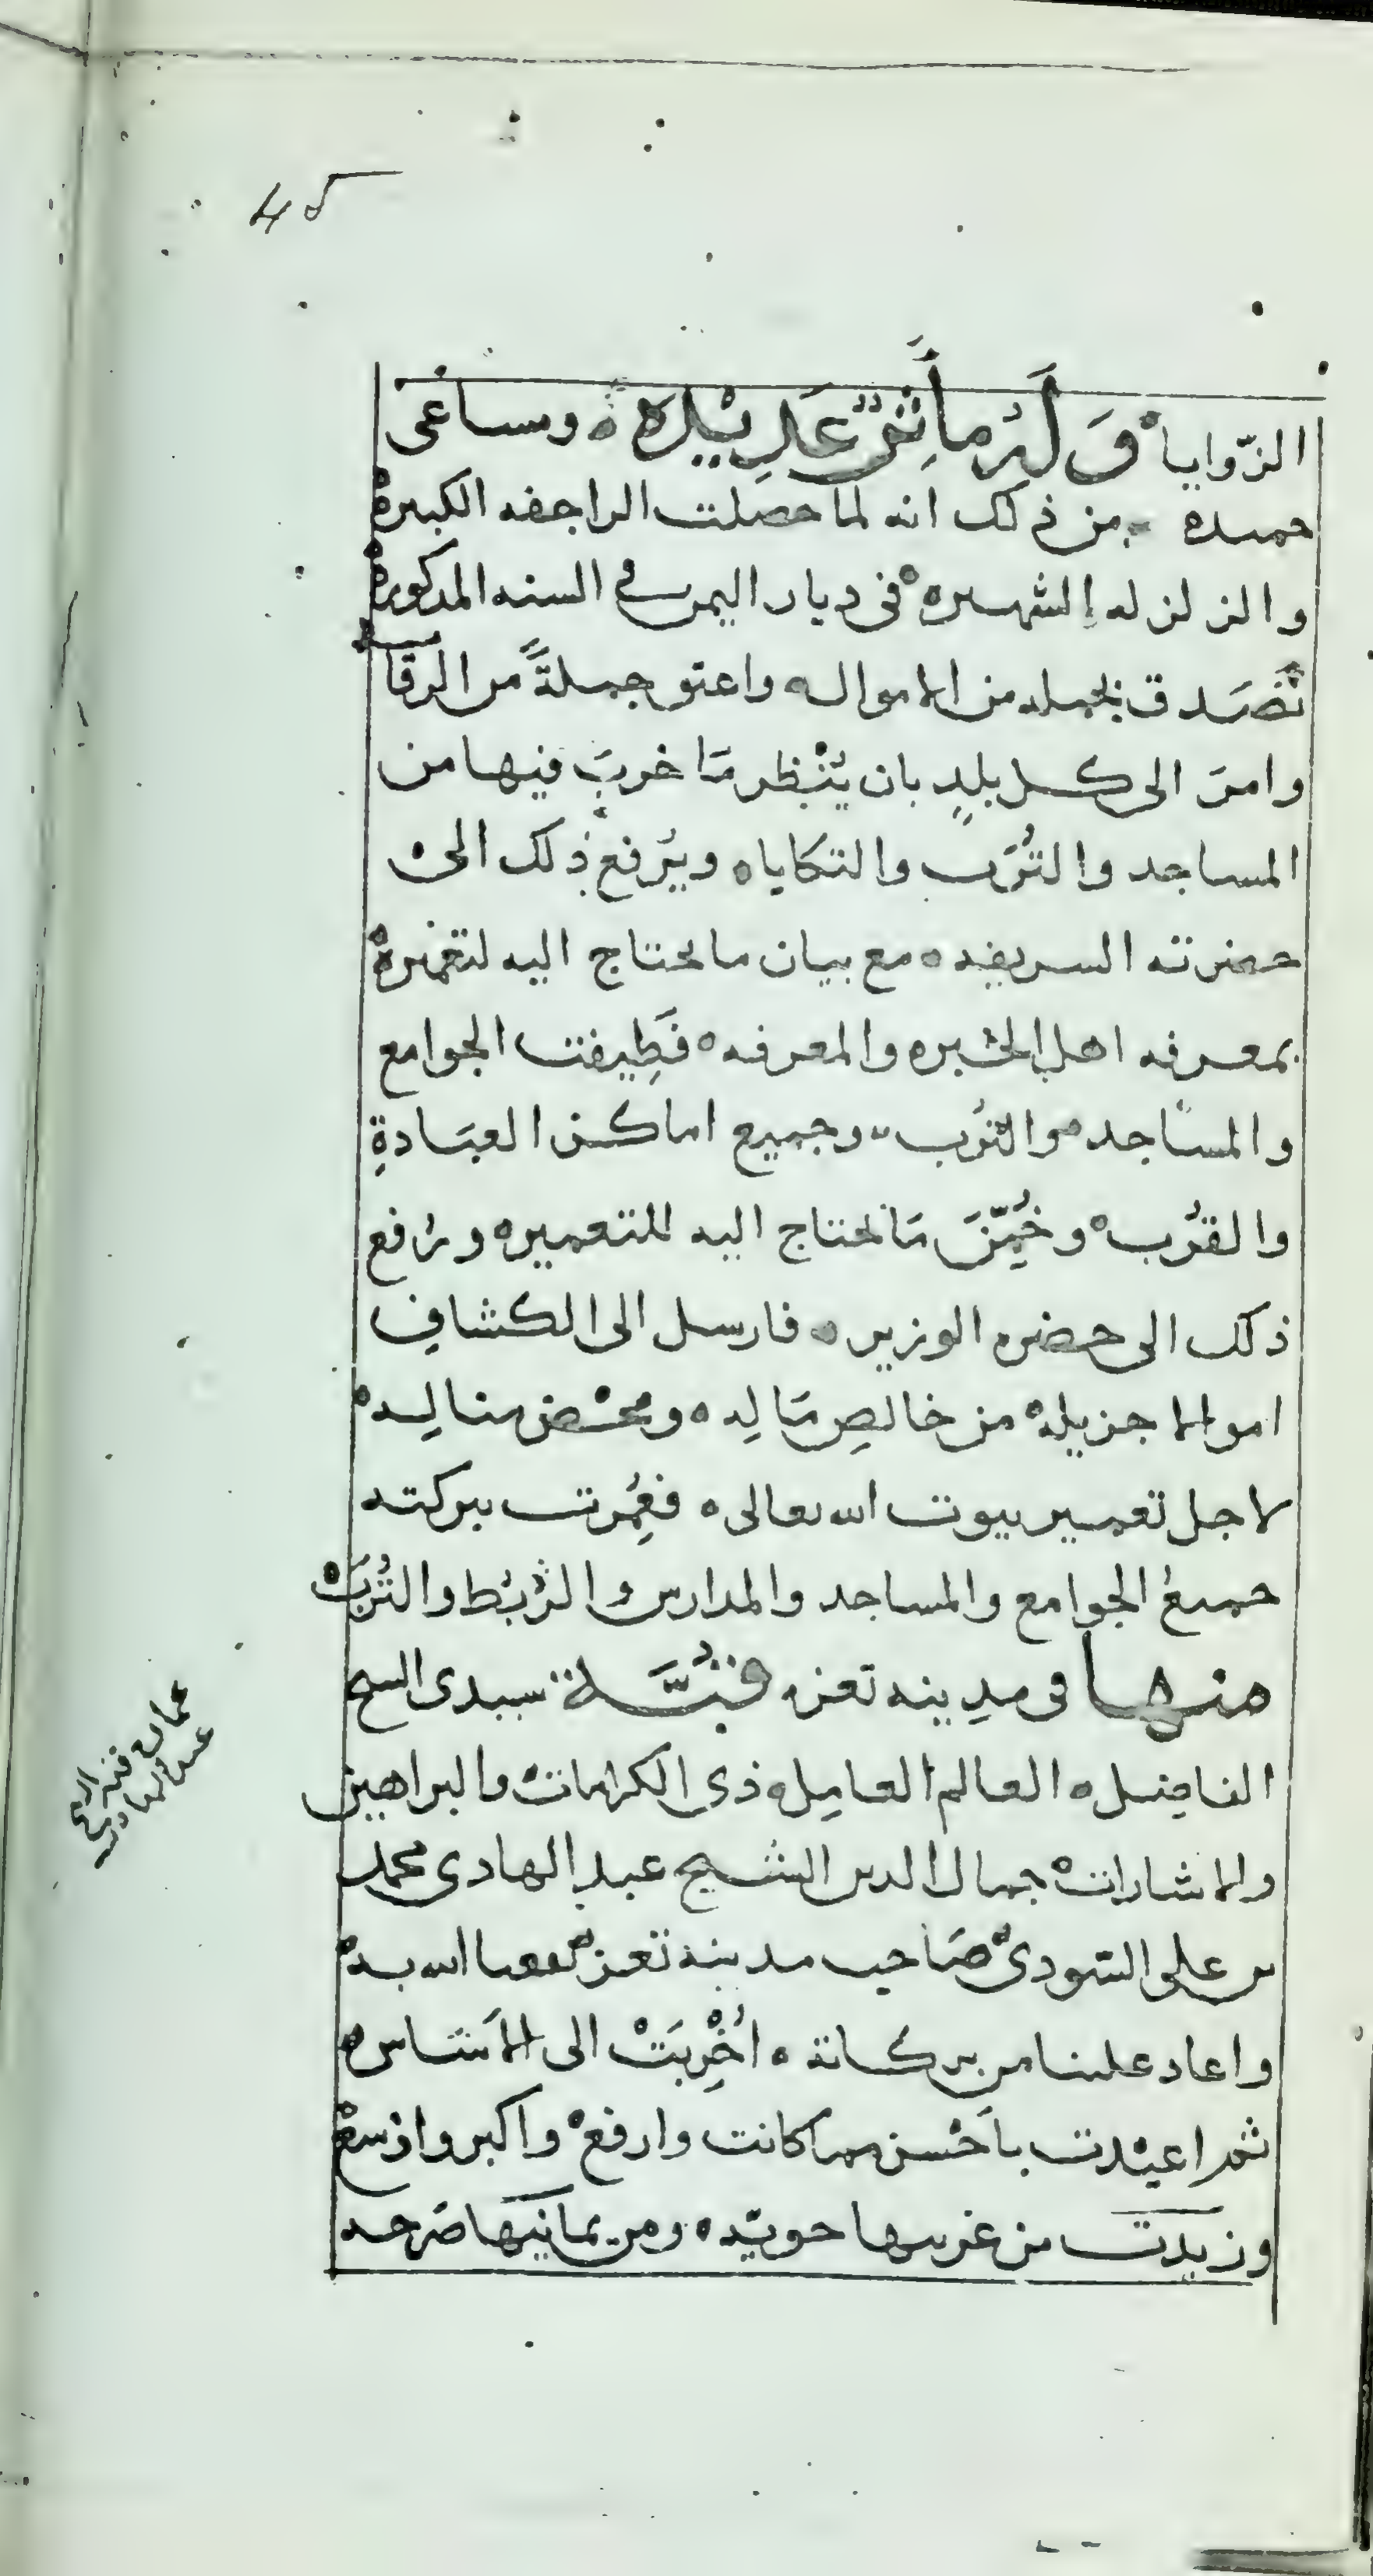 45
الزّوايا وَلَهُ مَأثِرُ عَدِيْدَه ومساعى
حميده من ذلك انه لما حصلت الراجفه الكبيرة
والزلزله الشهيره فى ديار اليمن فى السنه المذكورة
تَصَدق بجمله من الاموال واعتق جملةً من الرقاب
وامرَ الى كل بلدٍ بان يُنْظر مَا خربَ فيها من
المساجد والتُرَب والتكايا ويُرفع ذلك الى
حضرته الشريفه مع بيان ما يحتاج اليه لتعميره
بمعرفه اهل الخبره والمعرفه فَطِيفت الجوامع
والمساجد والتُرب وجميع اماكن العبَادةِ
والقُرب وخُمِّنَ مَا يحتاج اليه للتعمير ورُفع
ذلك الى حضره الوزير فارسل الى الكشافِ
اموالا جزيلة من خالصِ مَالِه ومحْض مناله
لاجل تعمير بيوت الله تعالى فعُمِرت ببركته
جميعُ الجوامع والمساجد والمدارس والرُبُط والتُرَبْ
منها فى مدينه تعز قُبَّة سيدى الشيخ
الفاضل العالم العامِل ذى الكرامات والبراهين
والاشارات جمال الدين الشيخ عبد الهادى محمد
بن على السّودى صَاحب مدينة تعز نفعنا الله به
واعاد علينا من بركاته اُخْرِبَتْ الى الاَسَاس
ثم اعيْدت باَحْسن مما كانت وارفعْ واكبر واوْسعْ
وزيدَت من غربيها حويّه ومن يمانيها صَرحه
عماره قبه الشيخ
عبد الهادى